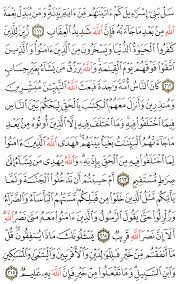 سَلْ بَنِىٓ إِسْرَٰٓءِيلَ كَمْ ءَاتَيْنَٰهُم مِّنْ ءَايَةٍۭ بَيِّنَةٍ ۗ وَمَن يُبَدِّلْ نِعْمَةَ
ٱللَّهِ مِنۢ بَعْدِ مَا جَآءَتْهُ فَإِنَّ ٱللَّهَ شَدِيدُ ٱلْعِقَابِ ٢١١ زُيِّنَ لِلَّذِينَ
كَفَرُوا۟ ٱلْحَيَوٰةُ ٱلدُّنْيَا وَيَسْخَرُونَ مِنَ ٱلَّذِينَ ءَامَنُوا۟ ۘ وَٱلَّذِينَ
ٱتَّقَوْا۟ فَوْقَهُمْ يَوْمَ ٱلْقِيَٰمَةِ ۗ وَٱللَّهُ يَرْزُقُ مَن يَشَآءُ بِغَيْرِ حِسَابٍ
٢١٢ كَانَ ٱلنَّاسُ أُمَّةً وَٰحِدَةً فَبَعَثَ ٱللَّهُ ٱلنَّبِيِّۦنَ مُبَشِّرِينَ
وَمُنذِرِينَ وَأَنزَلَ مَعَهُمُ ٱلْكِتَٰبَ بِٱلْحَقِّ لِيَحْكُمَ بَيْنَ ٱلنَّاسِ
فِيمَا ٱخْتَلَفُوا۟ فِيهِ ۚ وَمَا ٱخْتَلَفَ فِيهِ إِلَّا ٱلَّذِينَ أُوتُوهُ مِنۢ بَعْدِ
مَا جَآءَتْهُمُ ٱلْبَيِّنَٰتُ بَغْيًۢا بَيْنَهُمْ ۖ فَهَدَى ٱللَّهُ ٱلَّذِينَ ءَامَنُوا۟
لِمَا ٱخْتَلَفُوا۟ فِيهِ مِنَ ٱلْحَقِّ بِإِذْنِهِۦ ۗ وَٱللَّهُ يَهْدِى مَن يَشَآءُ إِلَىٰ
صِرَٰطٍ مُّسْتَقِيمٍ ٢١٣ أَمْ حَسِبْتُمْ أَن تَدْخُلُوا۟ ٱلْجَنَّةَ وَلَمَّا
يَأْتِكُم مَّثَلُ ٱلَّذِينَ خَلَوْا۟ مِن قَبْلِكُم ۖ مَّسَّتْهُمُ ٱلْبَأْسَآءُ وَٱلضَّرَّآءُ
وَزُلْزِلُوا۟ حَتَّىٰ يَقُولَ ٱلرَّسُولُ وَٱلَّذِينَ ءَامَنُوا۟ مَعَهُۥ مَتَىٰ نَصْرُ
ٱللَّهِ ۗ أَلَآ إِنَّ نَصْرَ ٱللَّهِ قَرِيبٌ ٢١٤ يَسْـَٔلُونَكَ مَاذَا يُنفِقُونَ ۖ قُلْ
مَآ أَنفَقْتُم مِّنْ خَيْرٍ فَلِلْوَٰلِدَيْنِ وَٱلْأَقْرَبِينَ وَٱلْيَتَٰمَىٰ وَٱلْمَسَٰكِينِ
وَٱبْنِ ٱلسَّبِيلِ ۗ وَمَا تَفْعَلُوا۟ مِنْ خَيْرٍ فَإِنَّ ٱللَّهَ بِهِۦ عَلِيمٌ ٢١٥